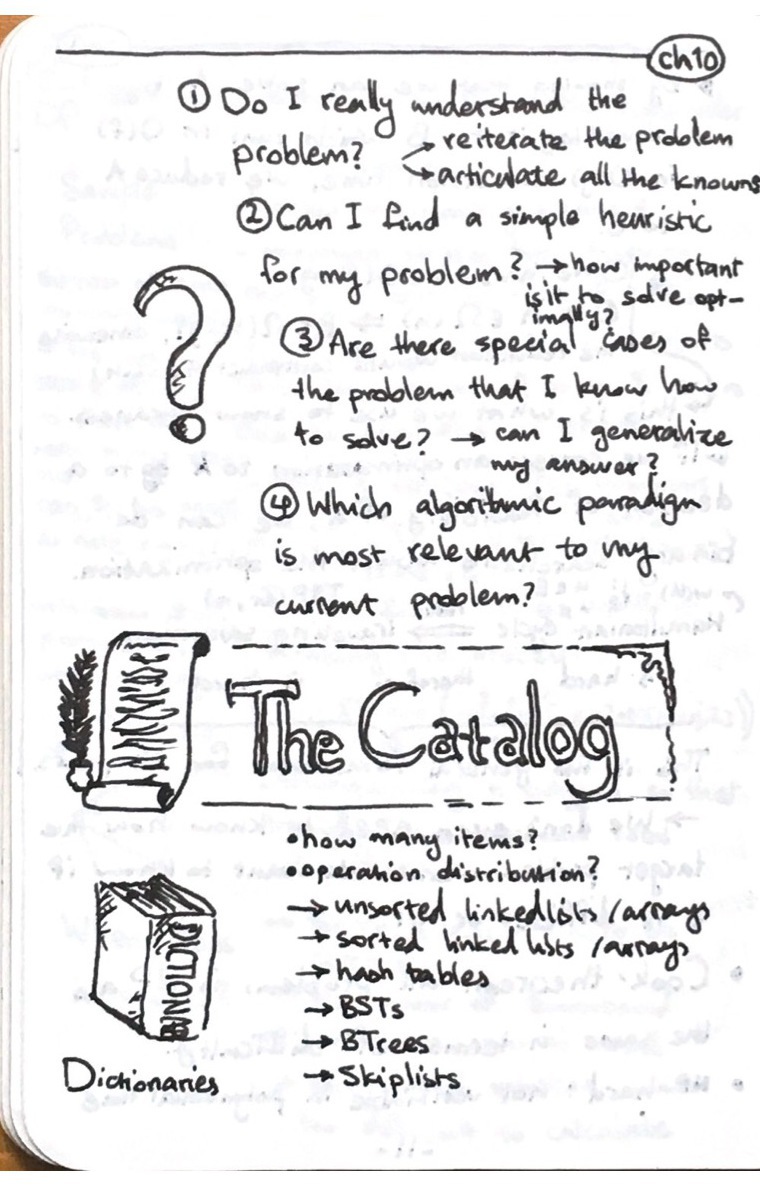 ch10
① Do I really understand the
problem? → reiterate the problem
→ articulate all the knowns
② Can I find a simple heuristic
for my problem? → how important
is it to solve opt-
imally?
③ Are there special cases of
the problem that I know how
to solve? → can I generalize
my answer?
④ Which algorithmic paradigm
is most relevant to my
current problem?
The Catalog
• how many items?
• operation distribution?
→ unsorted linkedlists/arrays
→ sorted linked lists/arrays
→ hash tables
→ BSTs
→ BTrees
→ Skiplists
DICTIONAR
Dictionaries